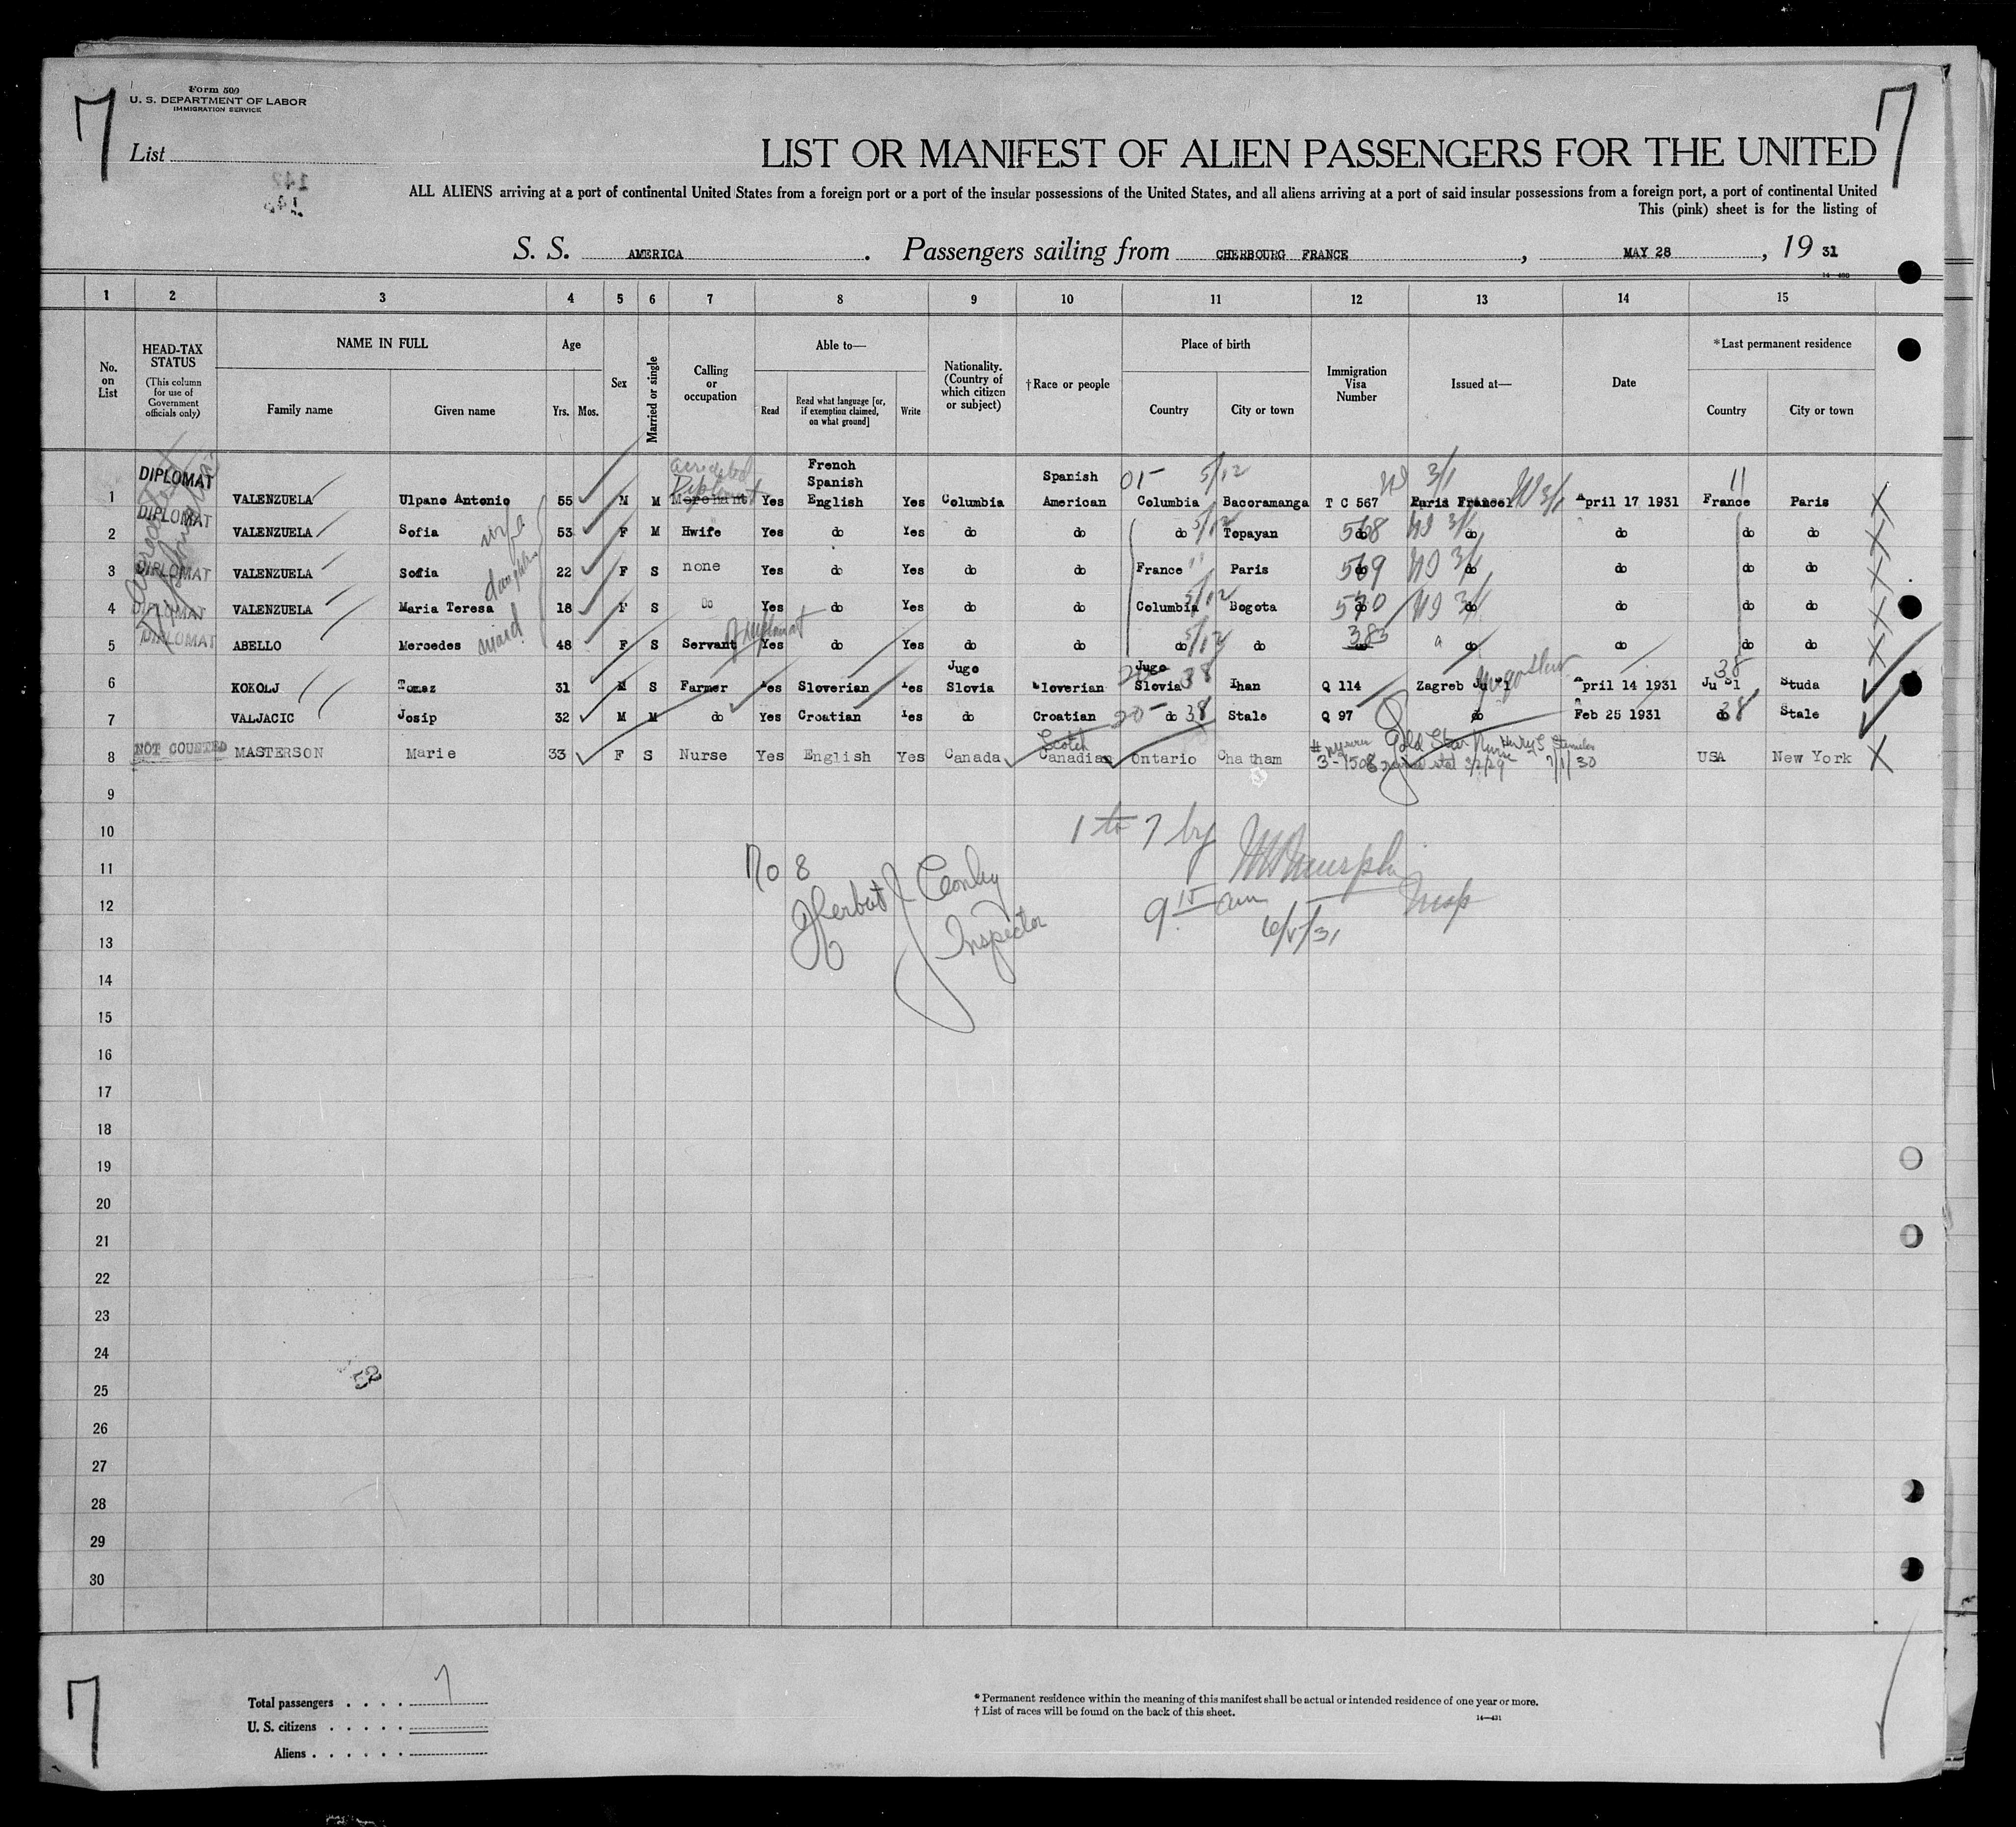 7
7
Form 500
U. S. DEPARTMENT OF LABOR
IMMIGRATION SERVICE
List
LIST OR MANIFEST OF ALIEN PASSENGERS FOR THE UNITED
ALL ALIENS arriving at a port of continental United States from a foreign port or a port of the insular possessions of the United States, and all aliens arriving at a port of said insular possessions from a foreign port, a port of continental United
This (pink) sheet is for the listing of
S. S. AMERICA. Passengers sailing from CHERBOURG FRANCE, MAY 28, 19 31
1 2 3 4 5 6 7 8 9 10 11 12 13 14 15
No. on List
HEAD-TAX STATUS (This column for use of Government officials only)
NAME IN FULL
Family name Given name
Age
Yrs. Mos.
Sex
Married or single
Calling or occupation
Able to—
Read Read what language [or, if exemption claimed, on what ground] Write
Nationality. (Country of which citizen or subject)
†Race or people
Place of birth
Country City or town
Immigration Visa Number
Issued at—
Date
*Last permanent residence
Country City or town
1 DIPLOMAT VALENZUELA Ulpano Antonio 55 M M Merchant Diplomat Yes French Spanish English Yes Columbia Spanish American 01- Columbia 5/12 Bacoramanga T C 567 3/1 Paris France 3/1 April 17 1931 11 France Paris X
2 DIPLOMAT VALENZUELA Sofia wife 53 F M Hwife Yes do Yes do do do 5/12 Topayan 568 do 3/1 do do do X
3 DIPLOMAT VALENZUELA Sofia daughters 22 F S none Yes do Yes do do France Paris 569 do 3/1 do do do X
4 DIPLOMAT VALENZUELA Maria Teresa 18 F S Do Yes do Yes do do Columbia 5/12 Bogota 570 do 3/1 do do do X
5 DIPLOMAT ABELLO Mercedes maid 48 F S Servant of diplomat Yes do Yes do do do 5/12 do 383 do do do do X
6 KOKOLJ Tomaz 31 M S Farmer Yes Sloverian Yes Jugo Slovia Sloverian Jugo Slovia 38 Ihan Q 114 Zagreb Ju Sl Jugoslav April 14 1931 38 Ju Sl Studa
7 VALJACIC Josip 32 M M do Yes Croatian Yes do Croatian 20- do 38 Stale Q 97 do Feb 25 1931 do 38 Stale
8 NOT COUNTED MASTERSON Marie 33 F S Nurse Yes English Yes Canada Scotch Canadian Ontario Chatham Gold Star Nurse 3/2/29 7/1/30 USA New York X
9
10
11
12
13
14
15
16
17
18
19
20
21
22
23
24
25
26
27
28
29
30
1 to 7 by
Murphy
Insp
9 15 am
6/5/31
No 8
Herbert J Conley
Inspector
7
Total passengers . . . . 7
U. S. citizens . . . . .
Aliens . . . . . .
* Permanent residence within the meaning of this manifest shall be actual or intended residence of one year or more.
† List of races will be found on the back of this sheet.
14—431